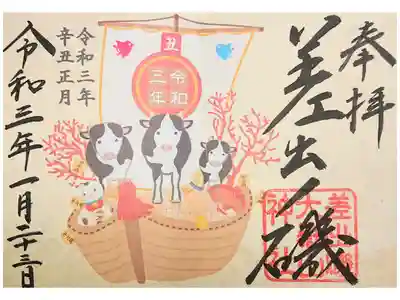 奉拝
差出ノ磯
丑
令和
三年
令和三年
辛丑正月
令和三年一月二十三日